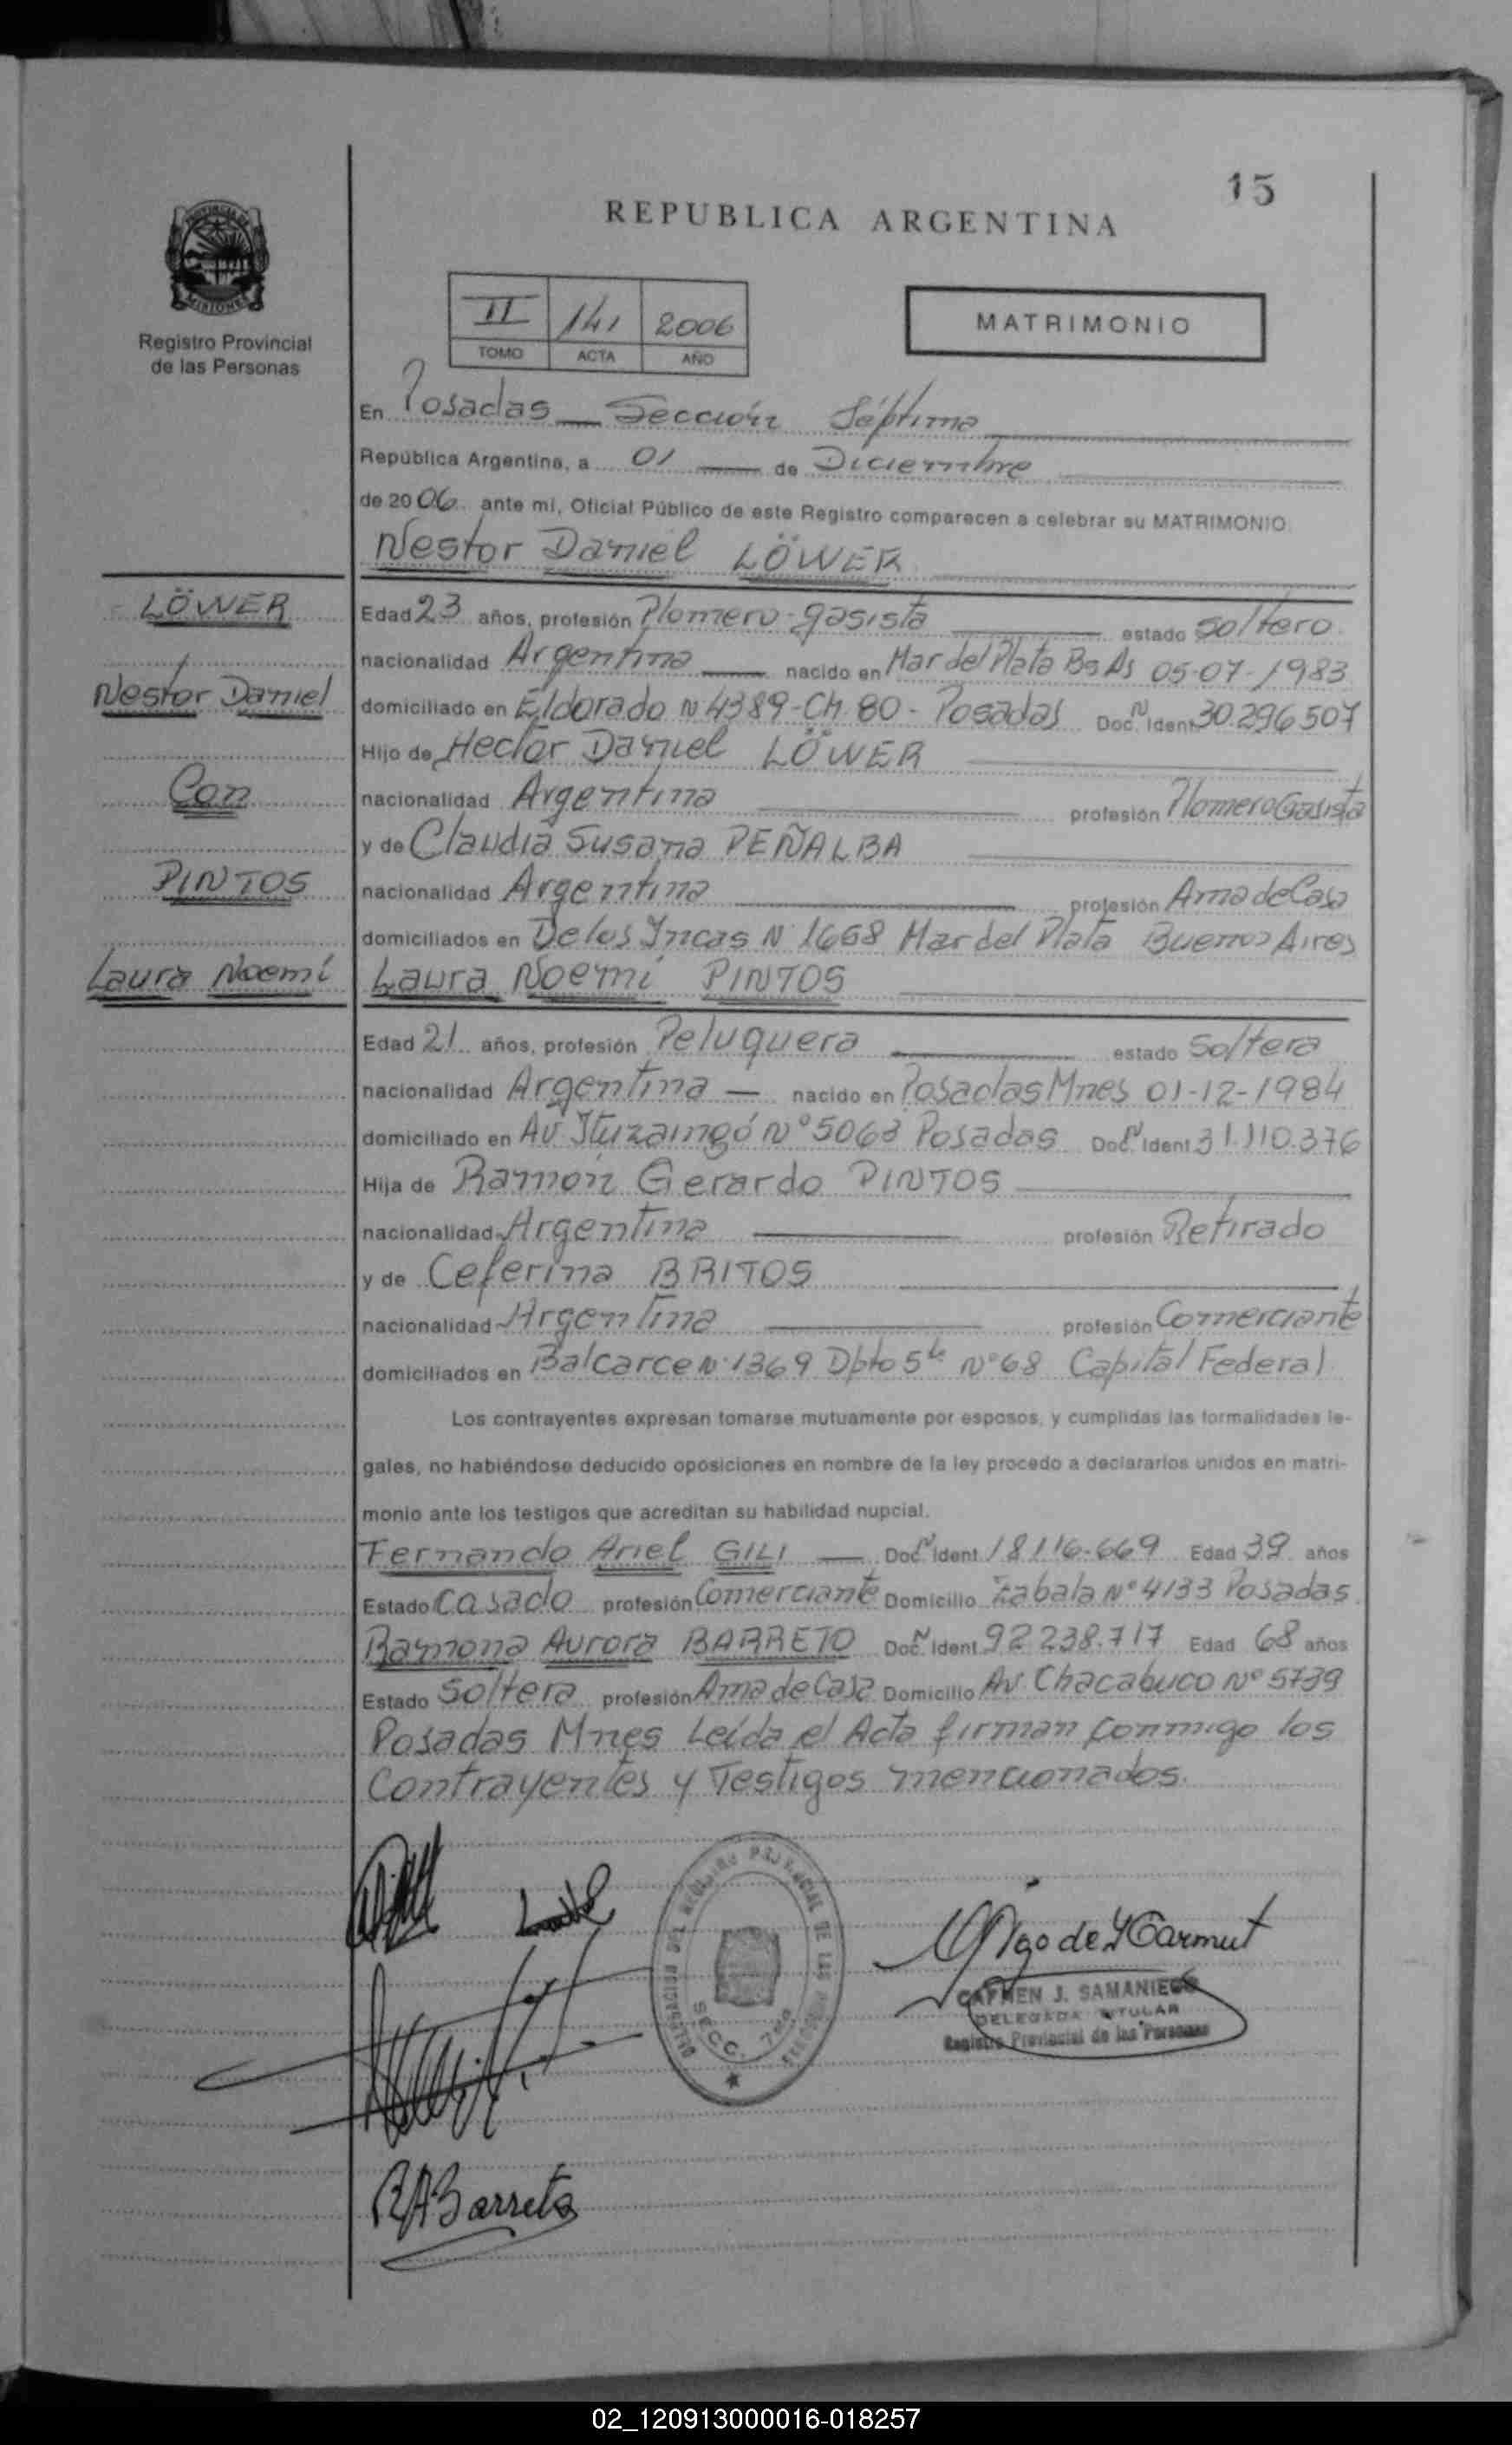 15
REPUBLICA ARGENTINA
PROVINCIA DE
MISIONES
Registro Provincial
de las Personas
II 141 2006
TOMO ACTA AÑO
MATRIMONIO
En Posadas Sección Séptima
República Argentina, a 01 de Diciembre
de 2006 ante mi, Oficial Público de este Registro comparecen a celebrar su MATRIMONIO
Nestor Daniel LÖWER
LÖWER
Nestor Daniel
Con
PINTOS
Laura Noemí
Edad 23 años, profesión Plomero-gasista estado Soltero
nacionalidad Argentina nacido en Mar del Plata Bs As 05-07-1983
domiciliado en Eldorado N 4389-Ch 80-Posadas Doc. N Ident 30.296507
Hijo de Hector Daniel LÖWER
nacionalidad Argentina profesión Plomero Gasista
y de Claudia Susana PEÑALBA
nacionalidad Argentina profesión Ama de Casa
domiciliados en De los Incas N 1668 Mar del Plata Buenos Aires
Laura Noemí PINTOS
Edad 21 años, profesión Peluquera estado Soltera
nacionalidad Argentina nacido en Posadas Mnes 01-12-1984
domiciliado en Av Ituzaingó N° 5063 Posadas Doc. N Ident 31.110.376
Hija de Ramón Gerardo PINTOS
nacionalidad Argentina profesión Retirado
y de Ceferina BRITOS
nacionalidad Argentina profesión Comerciante
domiciliados en Balcarce N° 1369 Dpto 5 N° 68 Capital Federal
Los contrayentes expresan tomarse mutuamente por esposos, y cumplidas las formalidades le-
gales, no habiéndose deducido oposiciones en nombre de la ley procedo a declararlos unidos en matri-
monio ante los testigos que acreditan su habilidad nupcial.
Fernando Ariel GILI Doc. N Ident 18116.669 Edad 39 años
Estado Casado profesión Comerciante Domicilio Zabala N° 4133 Posadas
Ramona Aurora BARRETO Doc. N Ident 92238.717 Edad 68 años
Estado Soltera profesión Ama de Casa Domicilio Av. Chacabuco N° 5739
Posadas Mnes Leída el Acta firman conmigo los
Contrayentes y Testigos mencionados.
DELEGACION DEL REGISTRO PROVINCIAL DE LAS PERSONAS
SECC. 7ma
CARMEN J. SAMANIEGO
DELEGADA TITULAR
Registro Provincial de las Personas
RABarreto
02_120913000016-018257